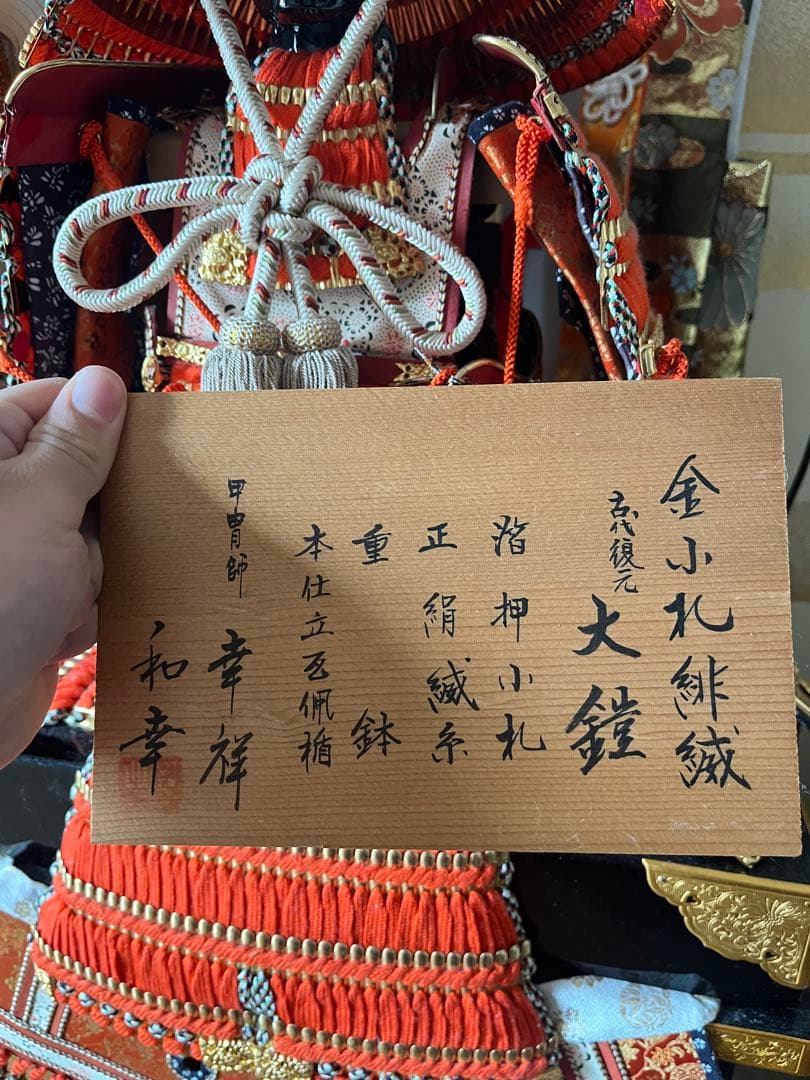 金小札緋縅
古代復元 大鎧
箔押小札
正絹縅糸
重鉢
本仕立瓦佩楯
甲冑師 幸祥
和幸